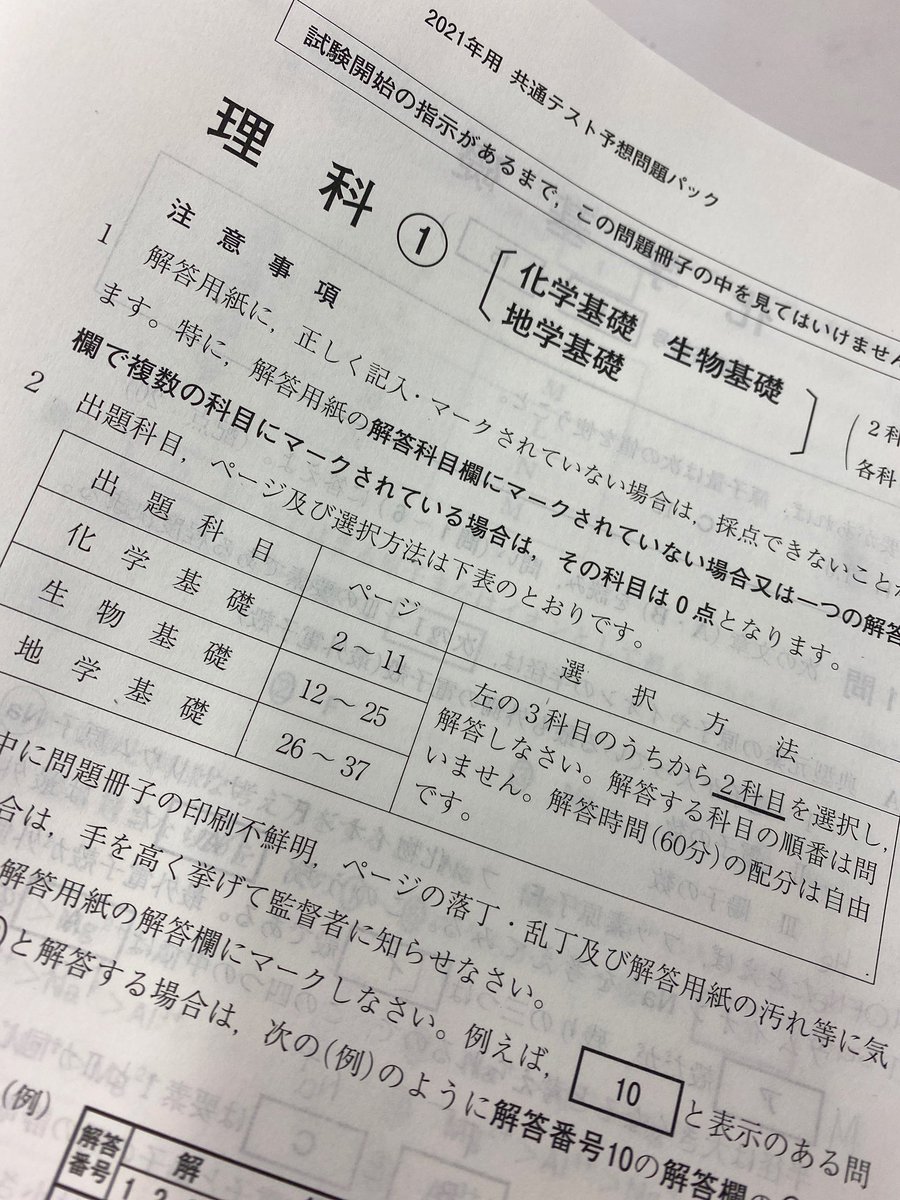 2021年用 共通テスト予想問題パック
試験開始の指示があるまで，この問題冊子の中を見てはいけません
理 科 ①
化学基礎 生物基礎
地学基礎
2科
各科
注 意 事 項
1 解答用紙に，正しく記入・マークされていない場合は，採点できないことが
ます。特に，解答用紙の解答科目欄にマークされていない場合又は一つの解答
欄で複数の科目にマークされている場合は，その科目は0点となります。
2 出題科目，ページ及び選択方法は下表のとおりです。
出 題 科 目 ページ 選 択 方 法
化 学 基 礎 2～11
生 物 基 礎 12～25
地 学 基 礎 26～37
左の3科目のうちから2科目を選択し，
解答しなさい。解答する科目の順番は問
いません。解答時間(60分)の配分は自由
です。
中に問題冊子の印刷不鮮明，ページの落丁・乱丁及び解答用紙の汚れ等に気
合は，手を高く挙げて監督者に知らせなさい。
解答用紙の解答欄にマークしなさい。例えば， 10 と表示のある問
と解答する場合は，次の(例)のように解答番号10の解答欄の
(例)
解答
番号
解
1 2